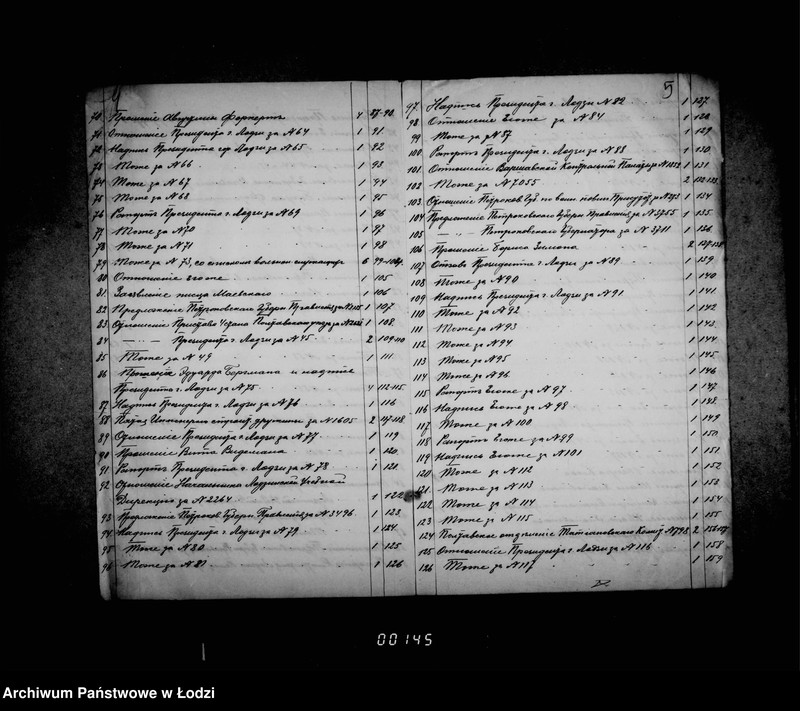 70 Прошеніе Августа 4 87-90
71 Отношеніе Президента г. Лодзи за №64 1 91
72 Надпись Президента гор Лодзи за №65 1 92
73 Тоже за №66 1 93
74 Тоже за №67 1 94
75 Тоже за №68 1 95
76 Рапортъ Президента г. Лодзи за №69 1 96
77 Тоже №70 1 97
78 Тоже №71 1 98
79 Тоже за №73, со 6 99-104
80 Отношеніе 1 105
81. Заявленіе писца Маевскаго 1 106
82 Предложеніе Петроковскаго Губерн Правленія за 1 107
83. Отношеніе 1 108
84 —"— Президента г. Лодзи за №45 2 109-110
85 Тоже за №49 1 111
86 Прошеніе Эдуарда и надпись
Президента г. Лодзи за №75 4 112-115
87 Надпись Президента г. Лодзи за №76 1 116
88 за №1605 2 117-118
89 Отношеніе Президента г. Лодзи за №77 1 119
90 Прошеніе 1 120
91 Рапортъ Президента г. Лодзи за №78 1 121
92 Отношеніе Начальника Лодзинской Учебной
Дирекціи за №2264 1 122
93 Предложеніе Петроков. Губерн. Правленія за №3496 1 123
94 Надпись Президента г. Лодзи за №79 1 124
95 Тоже за №80 1 125
96 Тоже за №81 1 126
5
97. Надпись Президента г. Лодзи №82 1 127
98 Отношеніе Егоже за №84 1 128
99 Тоже за №87 1 129
100 Рапортъ Президента г. Лодзи за №88 1 130
101 Отношеніе Варшавской Контрольной Палаты за 1 131
102 Тоже за №7055 2 132-133
103 Отношеніе 1 134
104 Предложеніе Петроковскаго Губерн Правленія за №3755 1 135
105 —"— Петроковскаго Губернатора за №3711 1 136
106 Прошеніе Бориса 2 137-138
107 Отзывъ Президента г. Лодзи за №89 1 139
108 Тоже за №90 1 140
109 Надпись Президента г. Лодзи за №91 1 141
110 Тоже за №92 1 142
111 Тоже за №93 1 143
112 Тоже за №94 1 144
113 Тоже за №95 1 145
114 Тоже за №96 1 146
115 Рапортъ Егоже за №97 1 147
116 Надпись Егоже за №98 1 148
117 Тоже за №100 1 149
118 Рапортъ Егоже за №99 1 150
119 Надпись Егоже за №101 1 151
120 Тоже за №112 1 152
121 Тоже за №113 1 153
122 Тоже за №114 1 154
123 Тоже за №115 1 155
124 Полтавское отдѣленіе №793 2 156-157
125 Отношеніе Президента г. Лодзи за №116 1 158
126 Тоже за №117 1 159
00145
Archiwum Państwowe w Łodzi